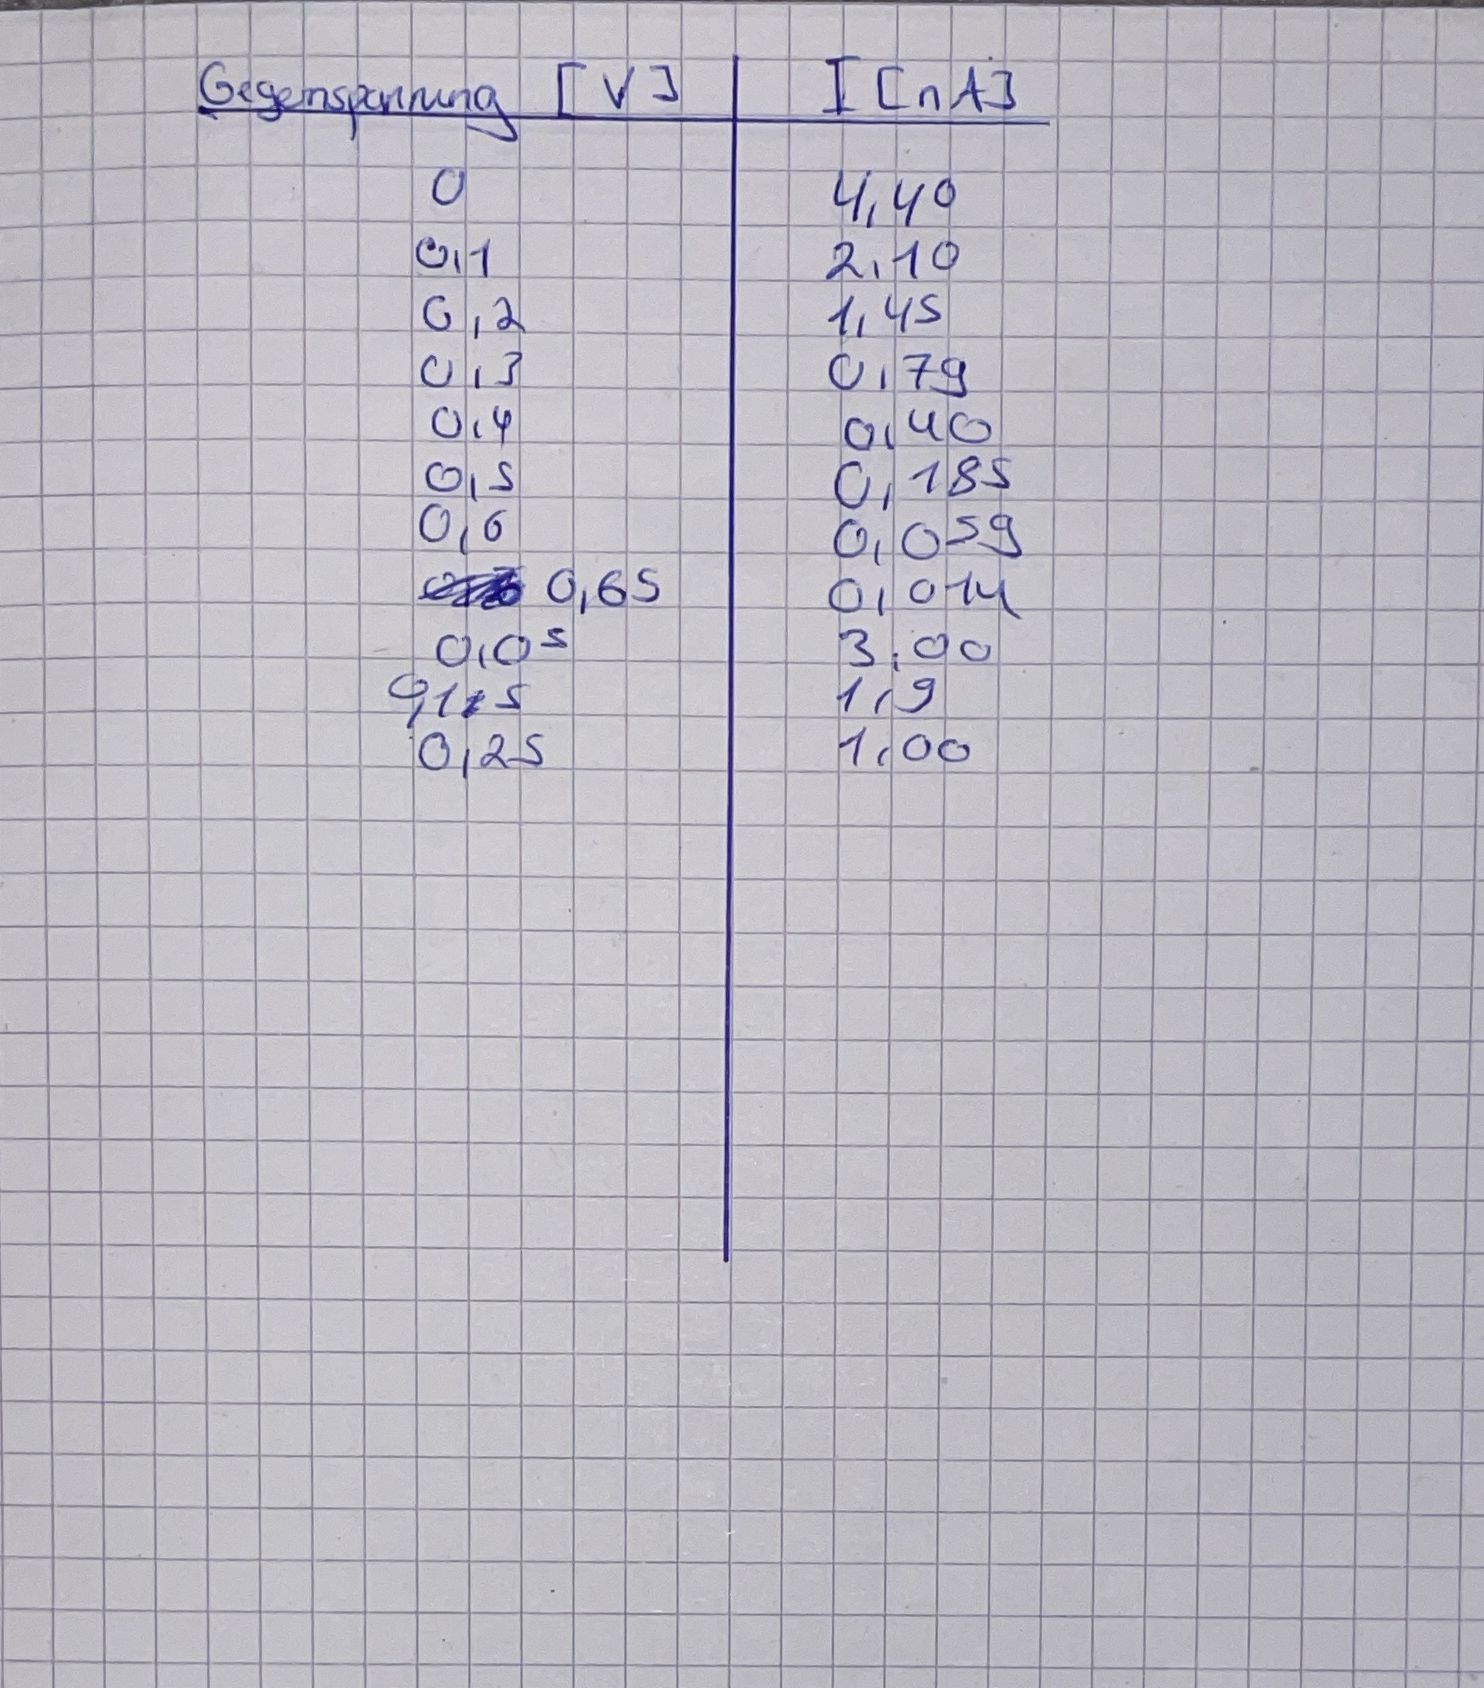 Gegenspannung [V] I [nA]
0 4,40
0,1 2,10
0,2 1,45
0,3 0,79
0,4 0,40
0,5 0,185
0,6 0,059
0,65 0,014
0,05 3,00
0,15 1,9
0,25 1,00